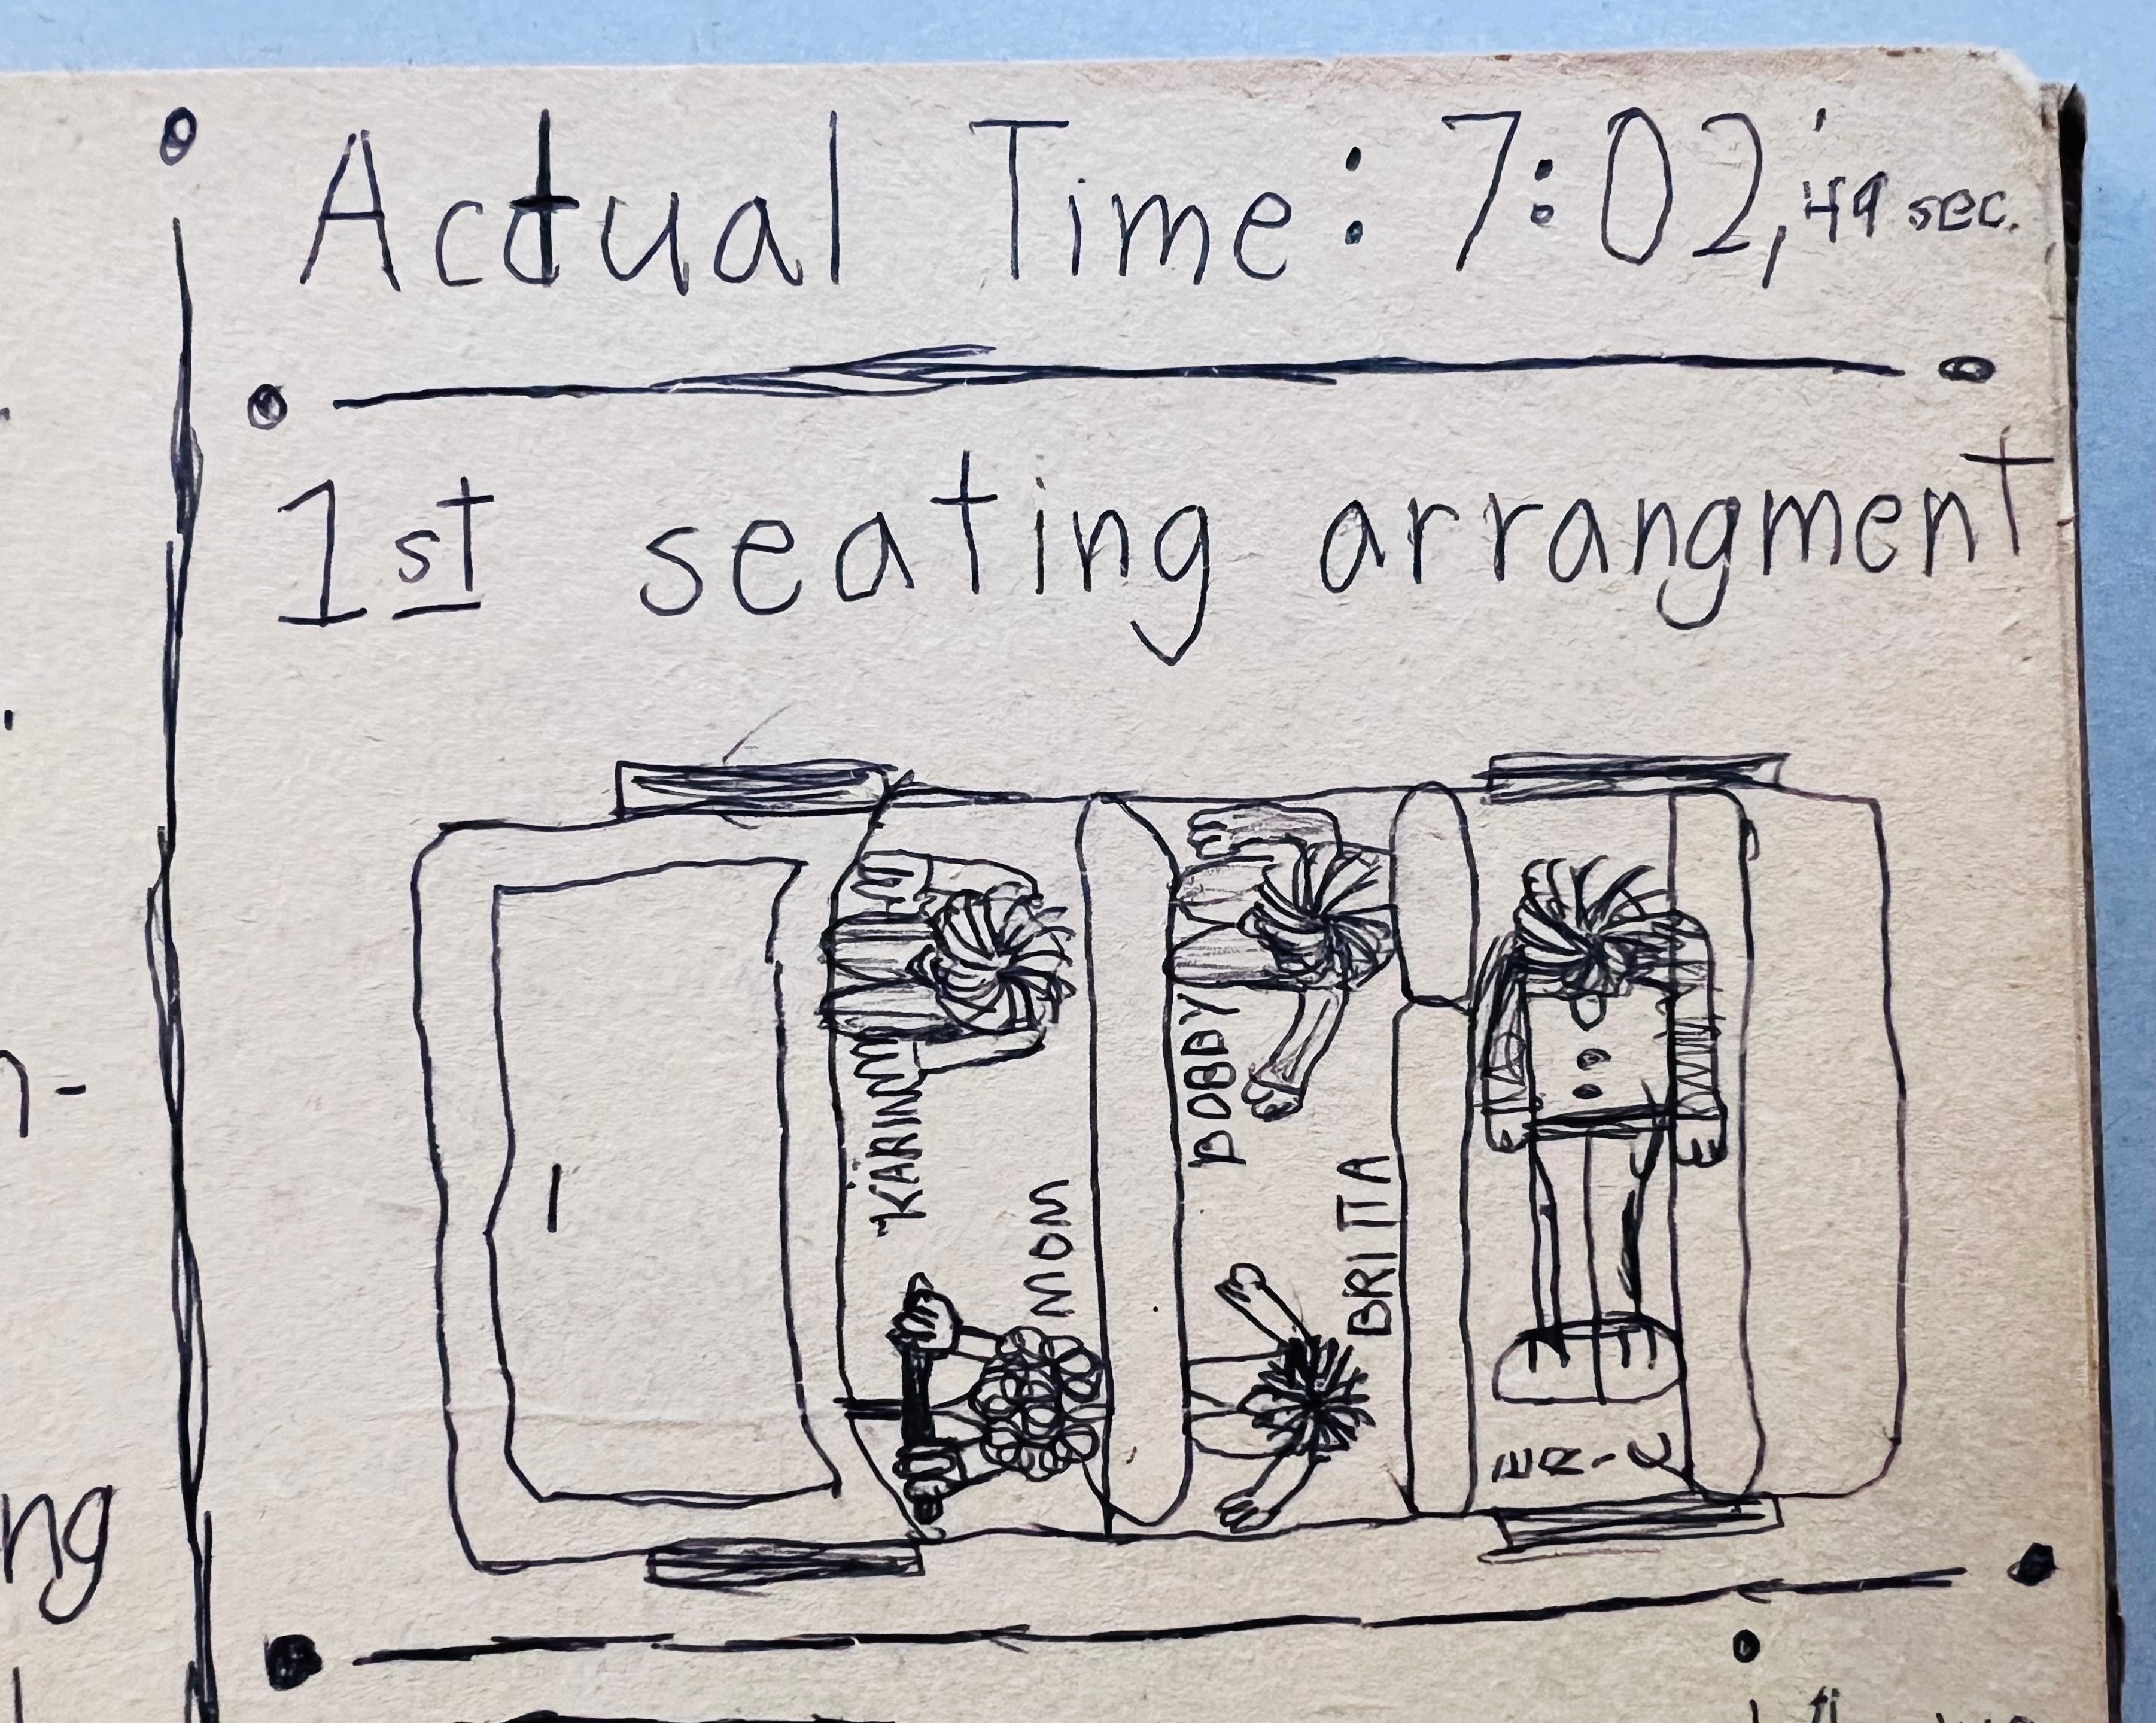 Actual Time: 7:02, 49 sec.
1st seating arrangment
KÄRIN
MOM
BOBBY
BRITTA
ERIC
n-
ng